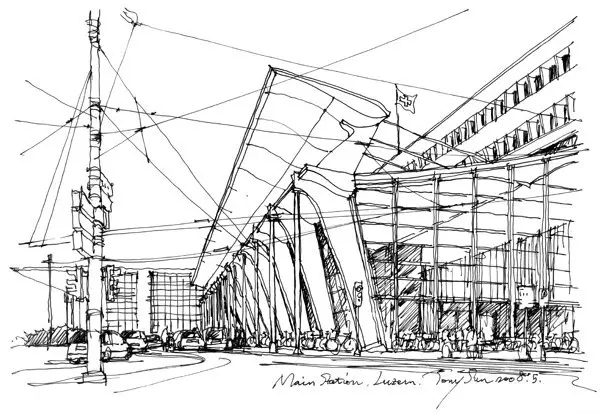 Main Station. Luzern. Tony Sun 2008.5.